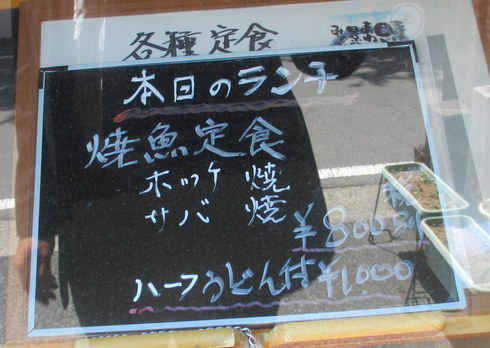 各種定食
本日のランチ
焼魚定食
ホッケ 焼
サバ 焼
¥800 税別
ハーフうどん付¥1,000